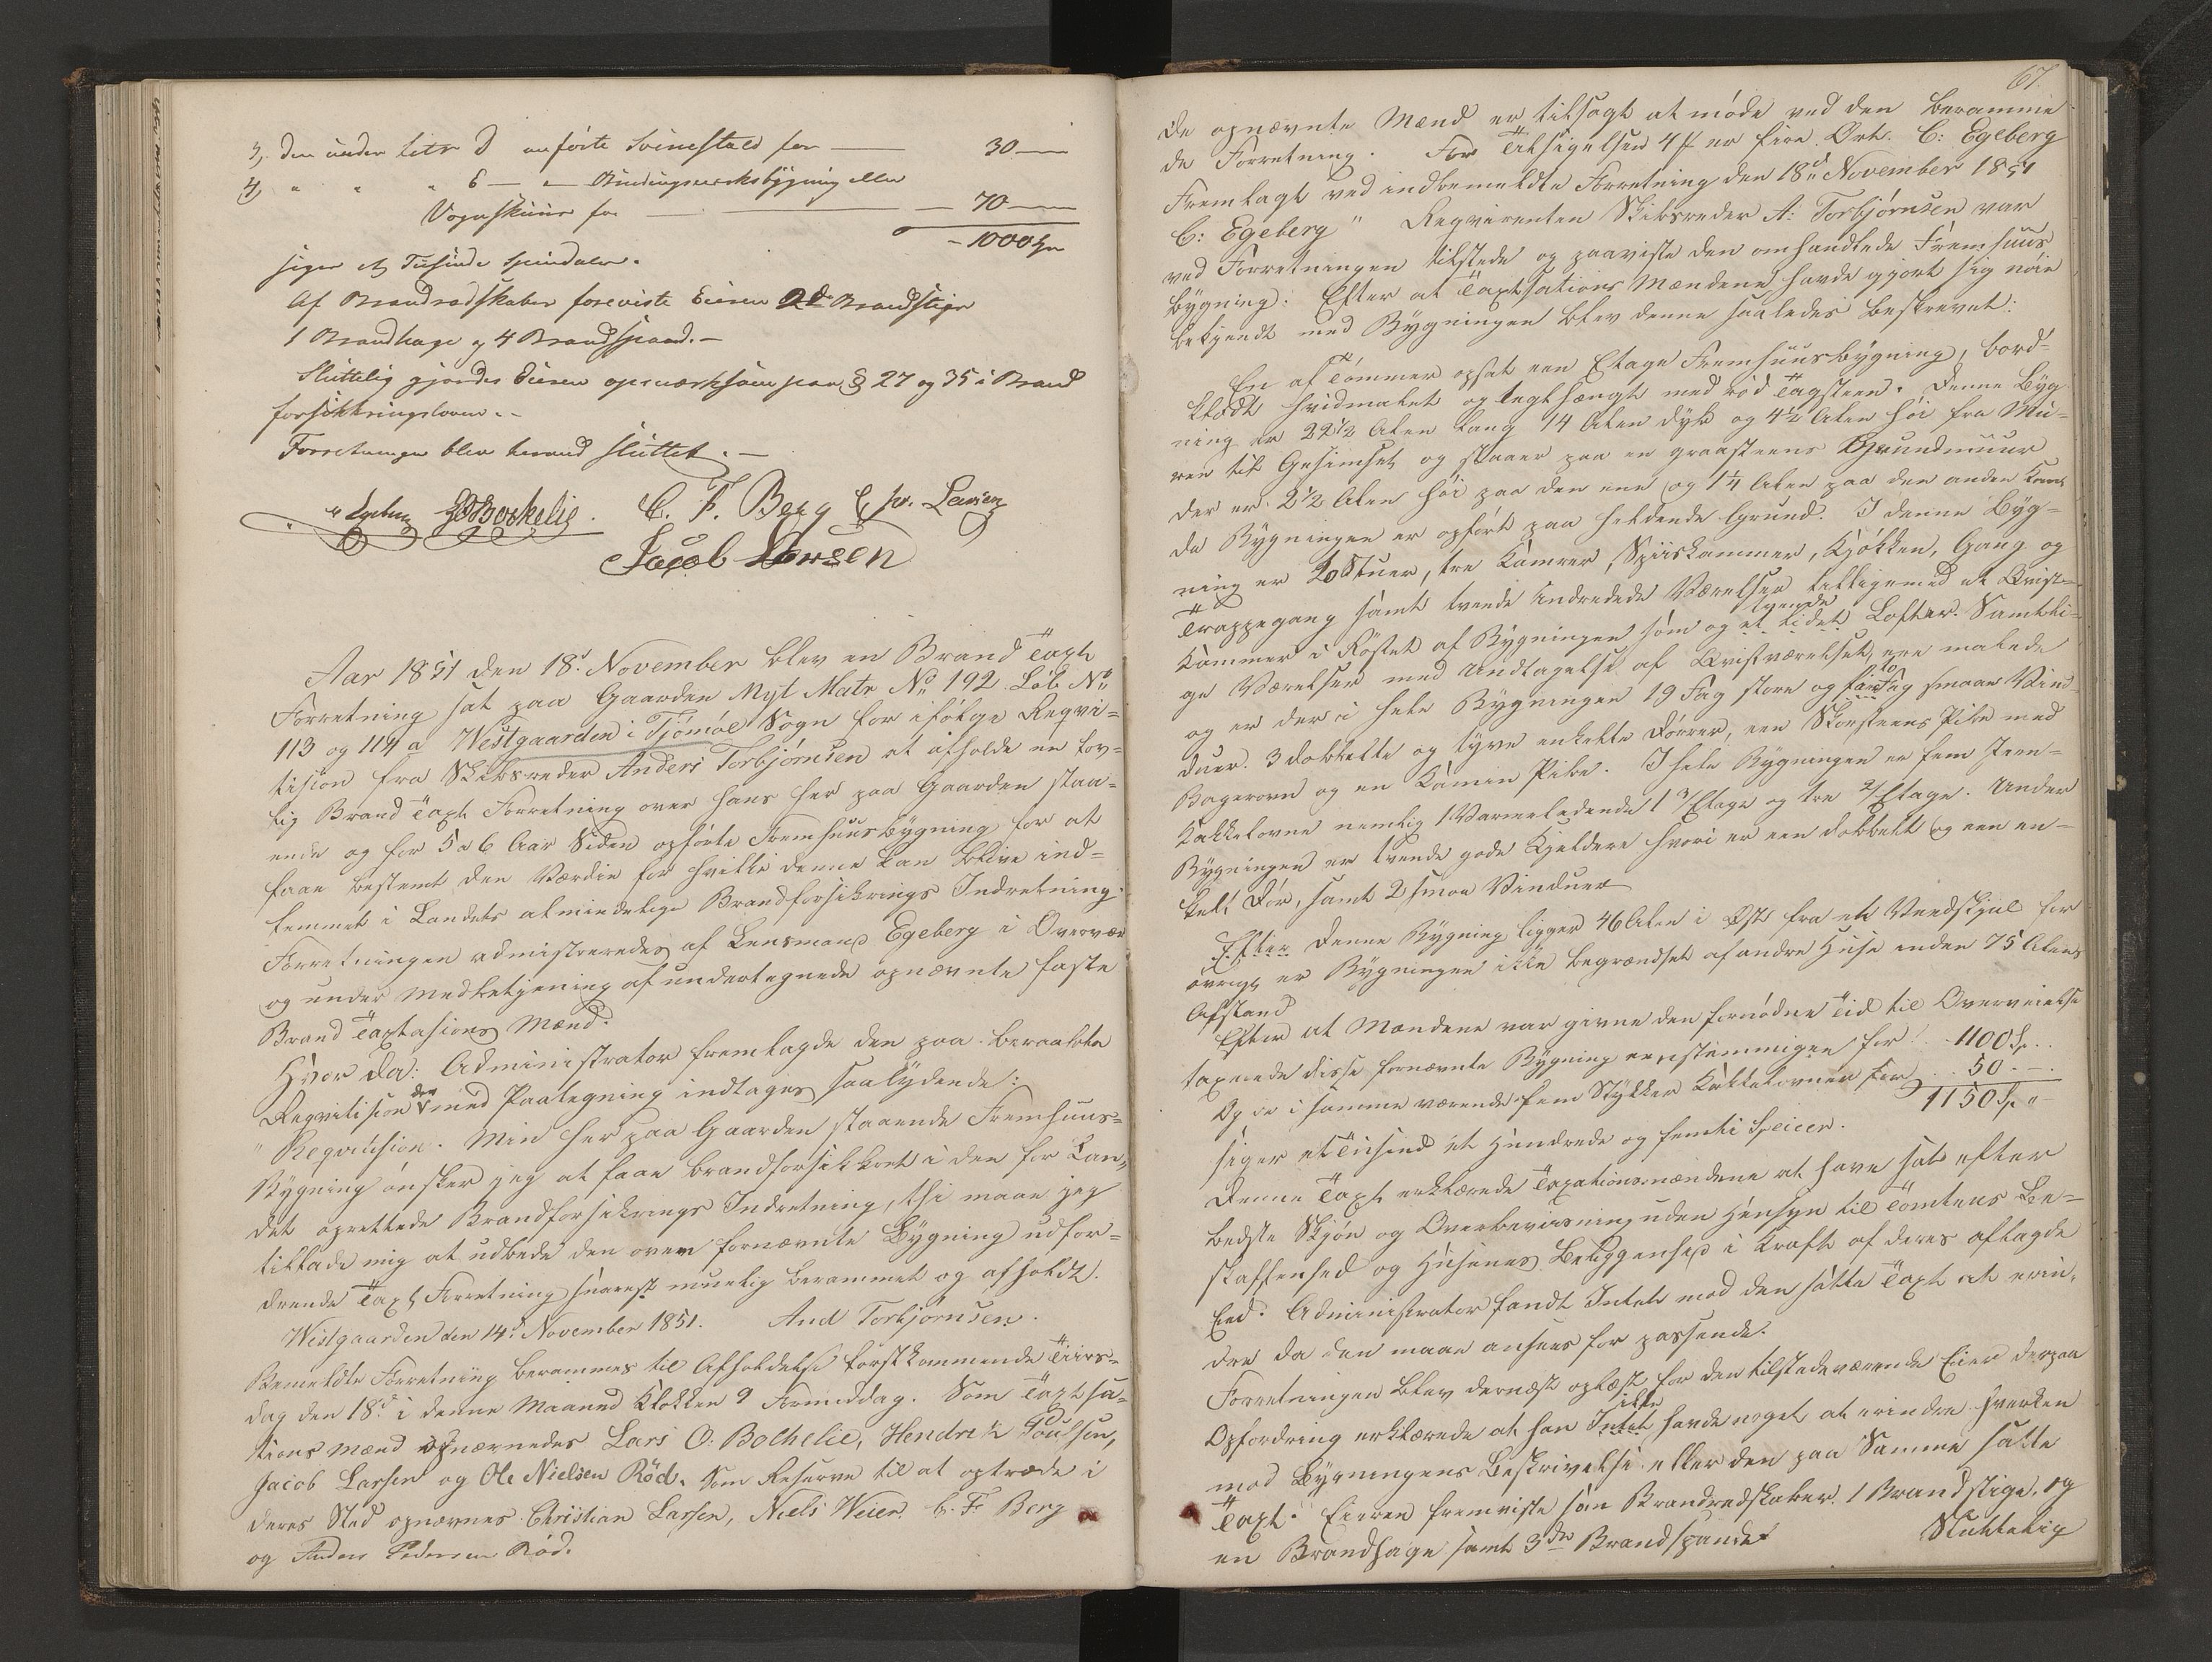 3, den under litr D anførte Svinestald for — 30 —
4, " " " E — Bindingsverksbygning eller
Vognskuur for — 70 —
— 1000 Spd
siger et Tusinde Speciedaler.
Af Brandredskaber foreviste Eieren 2de Brandstiger
1 Brandhage og 4 Brandspand. —
Sluttelig gjordes Eieren opmærksom paa § 27 og 35 i Brand
forsikkringsloven. —
Forretningen blev hermed sluttet. —
Egeberg C. F. Berg Chr. Larsen
Jacob Larsen
Aar 1851 den 18d November blev en Brand Taxt
Forretning sat paa Gaarden Myl Matr No 192 Løb No
113 og 114 a Westgaarden i Tjømøe Sogn for ifølge Reqvi=
tision fra Skibsreder Anders Torbjørnsen at afholde en lov=
lig Brand Taxt Forretning over hans her paa Gaarden staa=
ende og for 5 a 6 Aar Siden opførte Fremhuusbygning for at
faae bestemt den Værdie for hvilke denne kan blive ind=
lemmet i Landets almindelige Brandforsikrings Indretning.
Forretningen administreredes af Lensmand Egeberg i Overvær
og under Medbetjening af undertegnede opnævnte faste
Brand Taxtasions Mænd.
Hvor da: Administrator fremlagde den paa beraabte
Reqvitision der med Paategning indtages saalydende:
"Reqvitision. Min her paa Gaarden staaende Fremhuus=
Bygning ønsker jeg at faae brandforsikkret i den for Lan=
det oprettede Brandforsikrings Indretning, thi maae jeg
tillade mig at udbede den oven fornævnte Bygning udfor=
drende Taxt Forretning snarest muelig berammet og afholdt.
Westgaarden den 14d November 1851. And Torbjørnsen.
Bemeldte Forretning berammes til Afholdelse førstkommende Tiirs=
dag den 18d i denne Maaned Klokken 9 Formiddag. Som Taxtsa=
tions Mænd opnævnedes Lars O. Bothelie, Hendrik Poulsen,
Jacob Larsen og Ole Nielsen Rød. Som Reserve til at optræde i
deres Sted opnævnes Christian Larsen, Niels Weien, C. F. Berg
og Anders Pedersen Rød.
67.
De opnævnte Mænd er tilsagt at møde ved den beramme
de Forretning. For Tilsigelsen 4 ß er fire Ort. C: Egeberg
Fremlagt ved indbemeldte Forretning den 18d November 1851
C: Egeberg" Reqvirenten Skibsreder A: Torbjørnsen var
ved Forretningen tilstede og paaviste den omhandlede Fremhuus
bygning. Efter at Taxtsations Mændene havde gjort sig nøie
bekjendt med Bygningen blev denne saaledes beskrevet:
En af Tømmer opsat een Etage Fremhuusbygning, bord=
klædt hvidmalet og teglhængt med rød Tagsteen. Denne Byg
ning er 22½ Alen lang 14 Alen dyb og 4½ Alen høi fra Mu=
ren til Gesimset og staaer paa en graasteens Grundmuur
der er 2½ Alen høi paa den ene og 1¼ Alen paa den anden Kant
da Bygningen er opført paa heldende Grund. I denne Byg=
ning er 2o Stuer, tre Kamrer, Spiiskammer, Kjøkken, Gang og
Trappegang samt tvende indredede Værelser tilligemed et Qvist=
Kammer i Røstet af Bygningen som og et lidet tvende Lofter. Samtli=
ge Værelser med Undtagelse af Qvistværelset, ere malede
og er der i hele Bygningen 19 Fag store og to Fag smaae Vind=
duer. 3 dobbelte og tyve enkelte Dørrer, een Skorsteens Pibe med
Bagerovn og en Kamin Pibe. I hele Bygningen er fem Jern=
Kakkelovne nemlig 1 Varmeledende 1 3/Etage og tre 2/Etage. Under
Bygningen er tvende gode Kjeldere hvori er een dobbelt og een en=
kelt Dør, samt 2 smaa Vinduer
Efter Denne Bygning ligger 46 Alen i Øst fra et Vedskjul for
øvrigt er Bygningen ikke begrændset af andre Huse inden 75 Alens
Afstand
Efter at Mændene var givne den fornødne Tid til Overveielse
taxerede disse fornævnte Bygning eenstemmigen for 1100 Sp.
Og de i samme værende fem Stykker Kakkelovne for 50 —
1150 Sp "
siger et Tusind et Hundrede og femti Specier.
Denne Taxt erklærede Taxationsmændene at have sat efter
bedste Skjøn og Overbeviisning uden Hensyn til Tomtens Be=
skaffenhed og Husenes Beliggenhed i Kraft af deres aflagde
Eed. Administrator fandt Intet mod den satte Taxt at erin=
dre da den maae ansees for passende.
Forretningen blev dernæst oplæst for den tilstedeværende Eier derpaa
Opfordring erklærede at han Intet ikke havde noget at erindre hverken
mod Bygningens Beskrivelse eller den paa Samme satte
Taxt. Eieren fremviste som Brandredskaber 1 Brandstige, og
en Brandhage samt 3de Brandspande
Sluttelig